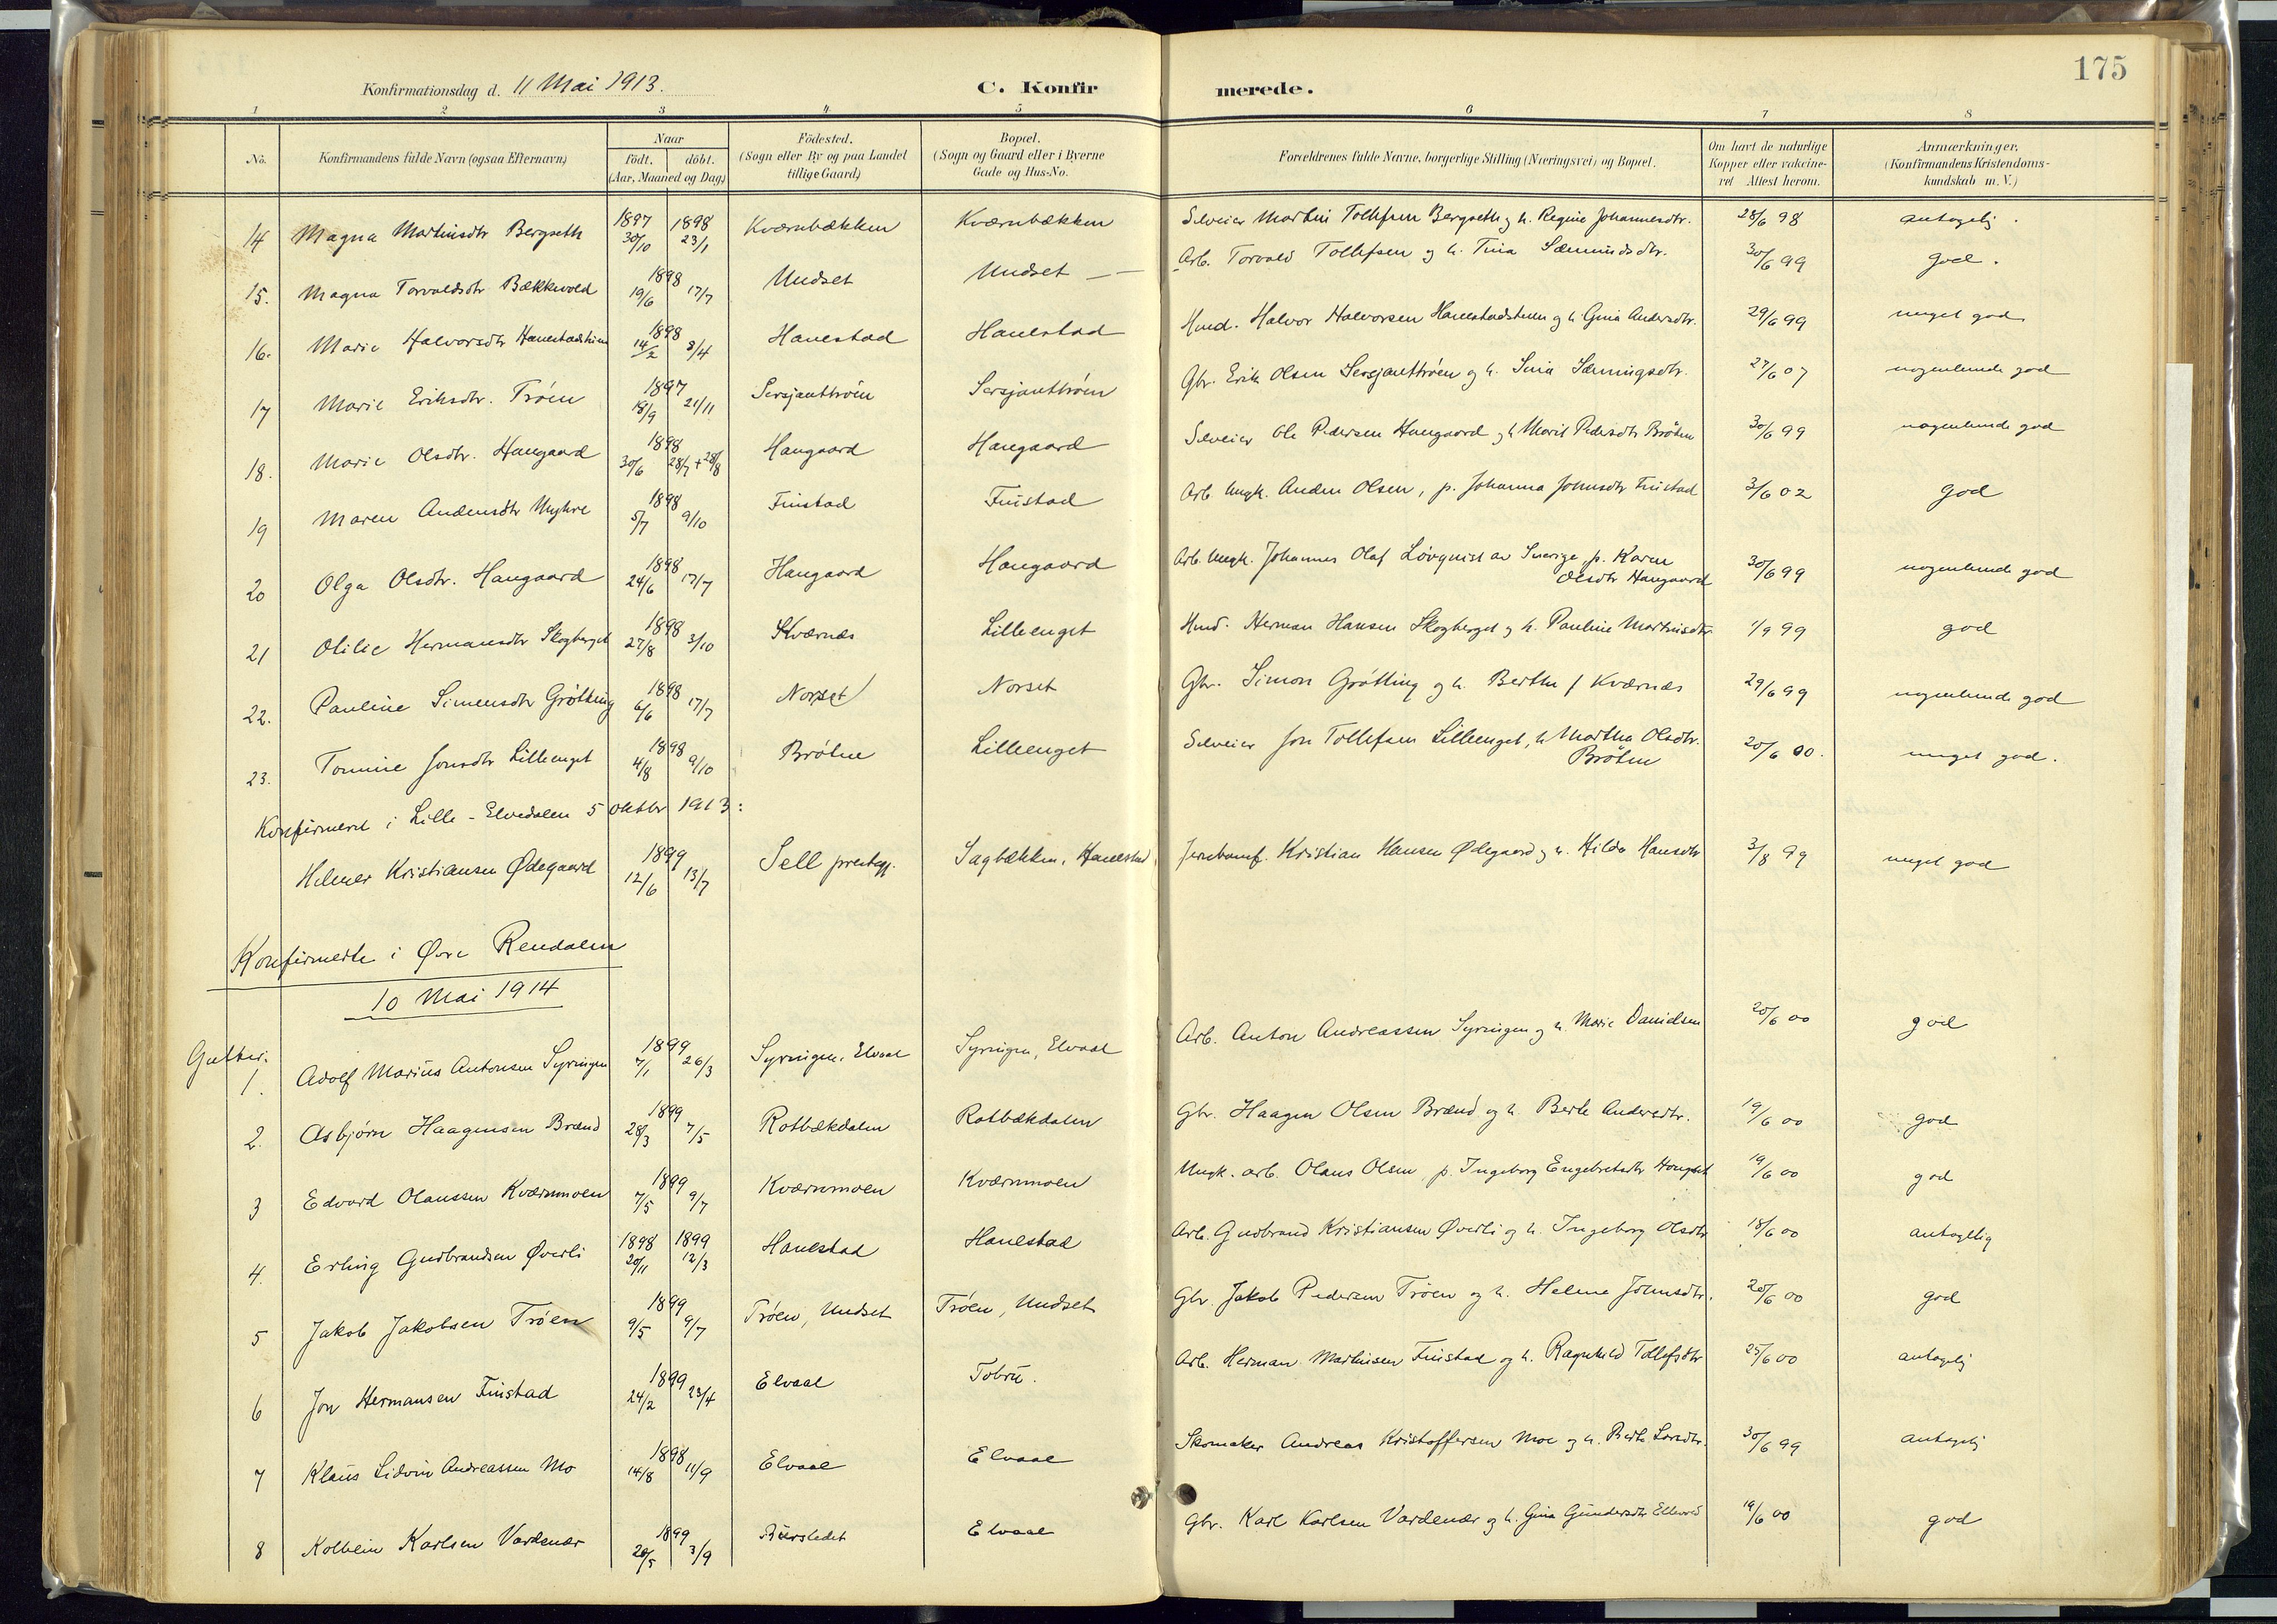 175
Konfirmationsdag d. 11 Mai 1913. C. Konfirmerede.
1 2 3 4 5 6 7 8
No. Konfirmandens fulde Navn (ogsaa Efternavn) Naar födt. döbt. (Aar, Maaned og Dag) Födested. (Sogn eller By og paa Landet tillige Gaard) Bopæl. (Sogn og Gaard eller i Byerne Gade og Hus-No. Forældrenes fulde Navne, borgerlige Stilling (Næringsvei) og Bopæl. Om havt de naturlige Kopper eller vakcineret Attest herom. Anmærkninger. (Konfirmandens Kristendomskundskab m.V.)
14 Magna Martinsdtr Bergseth 1897 30/10 1898 23/1 Kværnbækken Kværnbækken Selveier Martin Tollefsen Bergseth og h. Regine Johannesdtr. 28/6 98 antagelig.
15. Magna Torvaldsdtr Bækkevold 1898 19/6 17/7 Undset Undset Arb. Torvald Tollefsen og h. Tina Sæmundsdtr. 30/6 99 god.
16. Marie Halvorsdtr Hanestadstuen 1898 14/2 3/4 Hanestad Hanestad Hmd. Halvor Halvorsen Hanestadstuen og h Gina Andersdtr. 29/6 99 meget god
17 Marie Eriksdtr. Trøen 1897 18/9 21/11 Sersjanttrøen Sersjanttrøen Gbr. Erik Olsen Sersjanttrøen og h. Sina Sæmingsdtr. 27/6 07 nogenlunde god
18. Marie Olsdtr. Haugaard 1898 30/6 28/7 + 28/8 Haugaard Haugaard Selveier Ole Pedersen Haugaard og h Marit Pedersdtr Brøten 30/6 99 nogenlunde god
19 Maren Andensdtr Myhre 1898 5/7 9/10 Finstad Finstad Arb. Ungk. Anden Olsen, p. Johanna Johnsdtr Finstad 3/6 02 god
20 Olga Olsdtr. Haugaard 1898 24/6 17/7 Haugaard Haugaard Arb. Ungk. Johannes Olaf Løvquist av Sverige, p. Karen Olsdtr Haugaard 30/6 99 nogenlunde god
21 Otilie Hermansdtr Skogberget 1898 27/8 3/10 Kværnæs Lilleenget Hmd. Herman Hansen Skogberget og h. Pauline Martinsdtr. 1/9 99 god
22. Pauline Simensdtr Grøtting 1898 6/6 17/7 Norset Norset Gbr. Simon Grøtting og h. Berthe f Kværnæs 29/6 99 nogenlunde god
23. Tomine Jonsdtr Lilleenget 1898 4/8 9/10 Brøten Lilleenget Selveier Jon Tollefsen Lilleenget, h Martha Olsdtr. Brøten 20/6 00. meget god.
Konfirmert i Lille-Elvedalen 5 oktbr 1913:
Helmer Kristiansen Ødegaard 1899 12/6 13/7 Sell prestegj. Sagbækken, Hanestad Jernbanef. Kristian Hansen Ødegaard og h. Hilda Hansdtr 3/8 99 meget god
Konfirmerte i Øvre Rendalen
10 Mai 1914
Gutter.
1. Adolf Marius Antonsen Syringen 1899 7/1 26/3 Syringen, Elvaal Syringen, Elvaal Arb. Anton Andreassen Syringen og h. Marie Danielsen 20/6 00 god
2. Asbjørn Haagensen Brænd 1899 28/3 7/5 Rotbækdalen Rotbækdalen Gbr. Haagen Olsen Brænd og h. Berte Andersdtr. 19/6 00 god
3 Edvard Olaussen Kværnmoen 1899 7/5 9/7 Kværnmoen Kværnmoen Ungk. arb. Olaus Olsen, p. Ingeborg Engebretsdtr Haugset 19/6 00 god
4. Erling Gudbrandsen Øverli 1898 20/11 1899 12/3 Hanestad Hanestad Arb. Gudbrand Kristiansen Øverli og h. Ingeborg Olsdtr 18/6 00 antagelig
5 Jakob Jakobsen Trøen 1899 9/5 9/7 Trøen, Undset Trøen, Undset Gbr. Jakob Pedersen Trøen og h. Helene Johnsdtr. 20/6 00 god
6 Jon Hermansen Finstad 1899 24/2 23/4 Elvaal Tobru. Arb. Herman Martinsen Finstad og h. Ragnhild Tollefsdtr 25/6 00 antagelig
7 Klaus Lidvin Andreassen Mo 1898 14/8 11/9 Elvaal Elvaal Skomaker Andreas Kristoffersen Moe og h. Berte Larsdtr. 30/6 99 antagelig
8 Kolbein Karlsen Vardenær 1899 20/5 3/9 Burstedet Elvaal Gbr. Karl Karlsen Vardenær og h. Gina Gundersdtr Ellevold 19/6 00 god